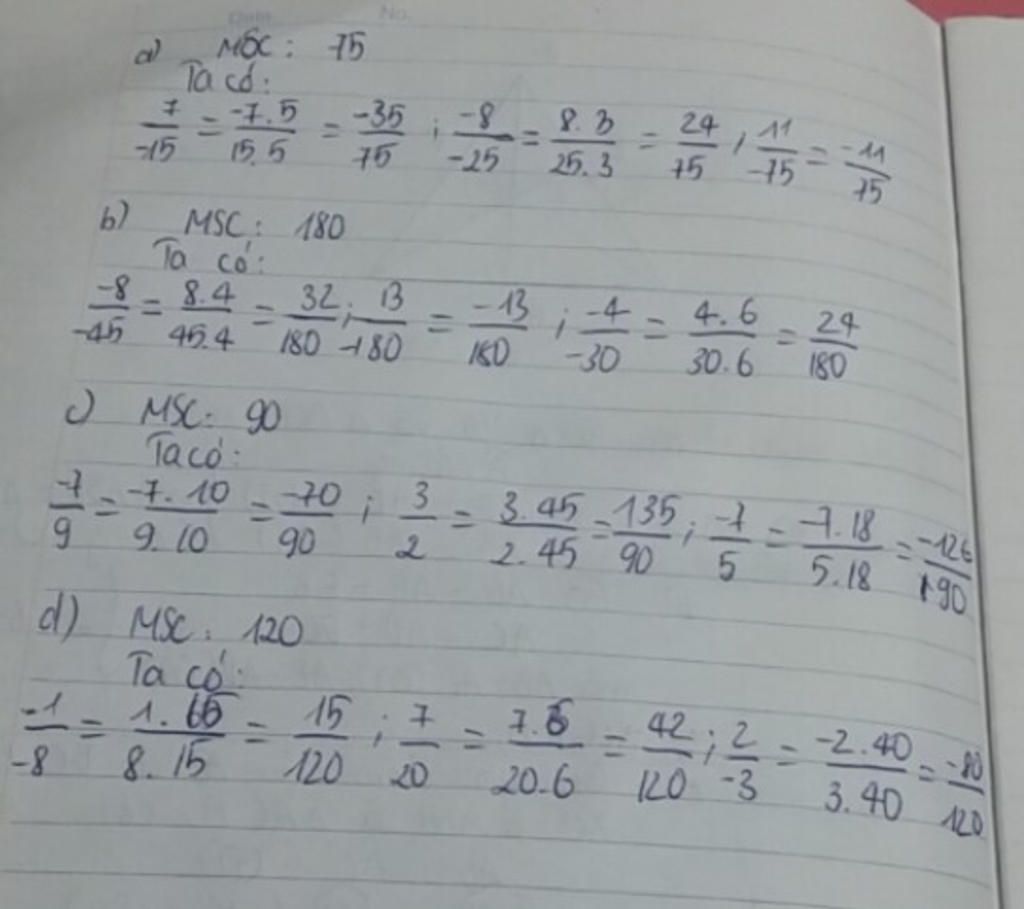 Date No.
a) MSC: 75
Ta có:
7/-15 = -7.5/15.5 = -35/75 ; -8/-25 = 8.3/25.3 = 24/75 ; 11/-75 = -11/75
b) MSC: 180
Ta có:
-8/-45 = 8.4/45.4 = 32/180 ; 13/-180 = -13/180 ; -4/-30 = 4.6/30.6 = 24/180
c) MSC: 90
Ta có:
-7/9 = -7.10/9.10 = -70/90 ; 3/2 = 3.45/2.45 = 135/90 ; -7/5 = -7.18/5.18 = -126/90
d) MSC: 120
Ta có:
-1/-8 = 1.15/8.15 = 15/120 ; 7/20 = 7.6/20.6 = 42/120 ; 2/-3 = -2.40/3.40 = -80/120